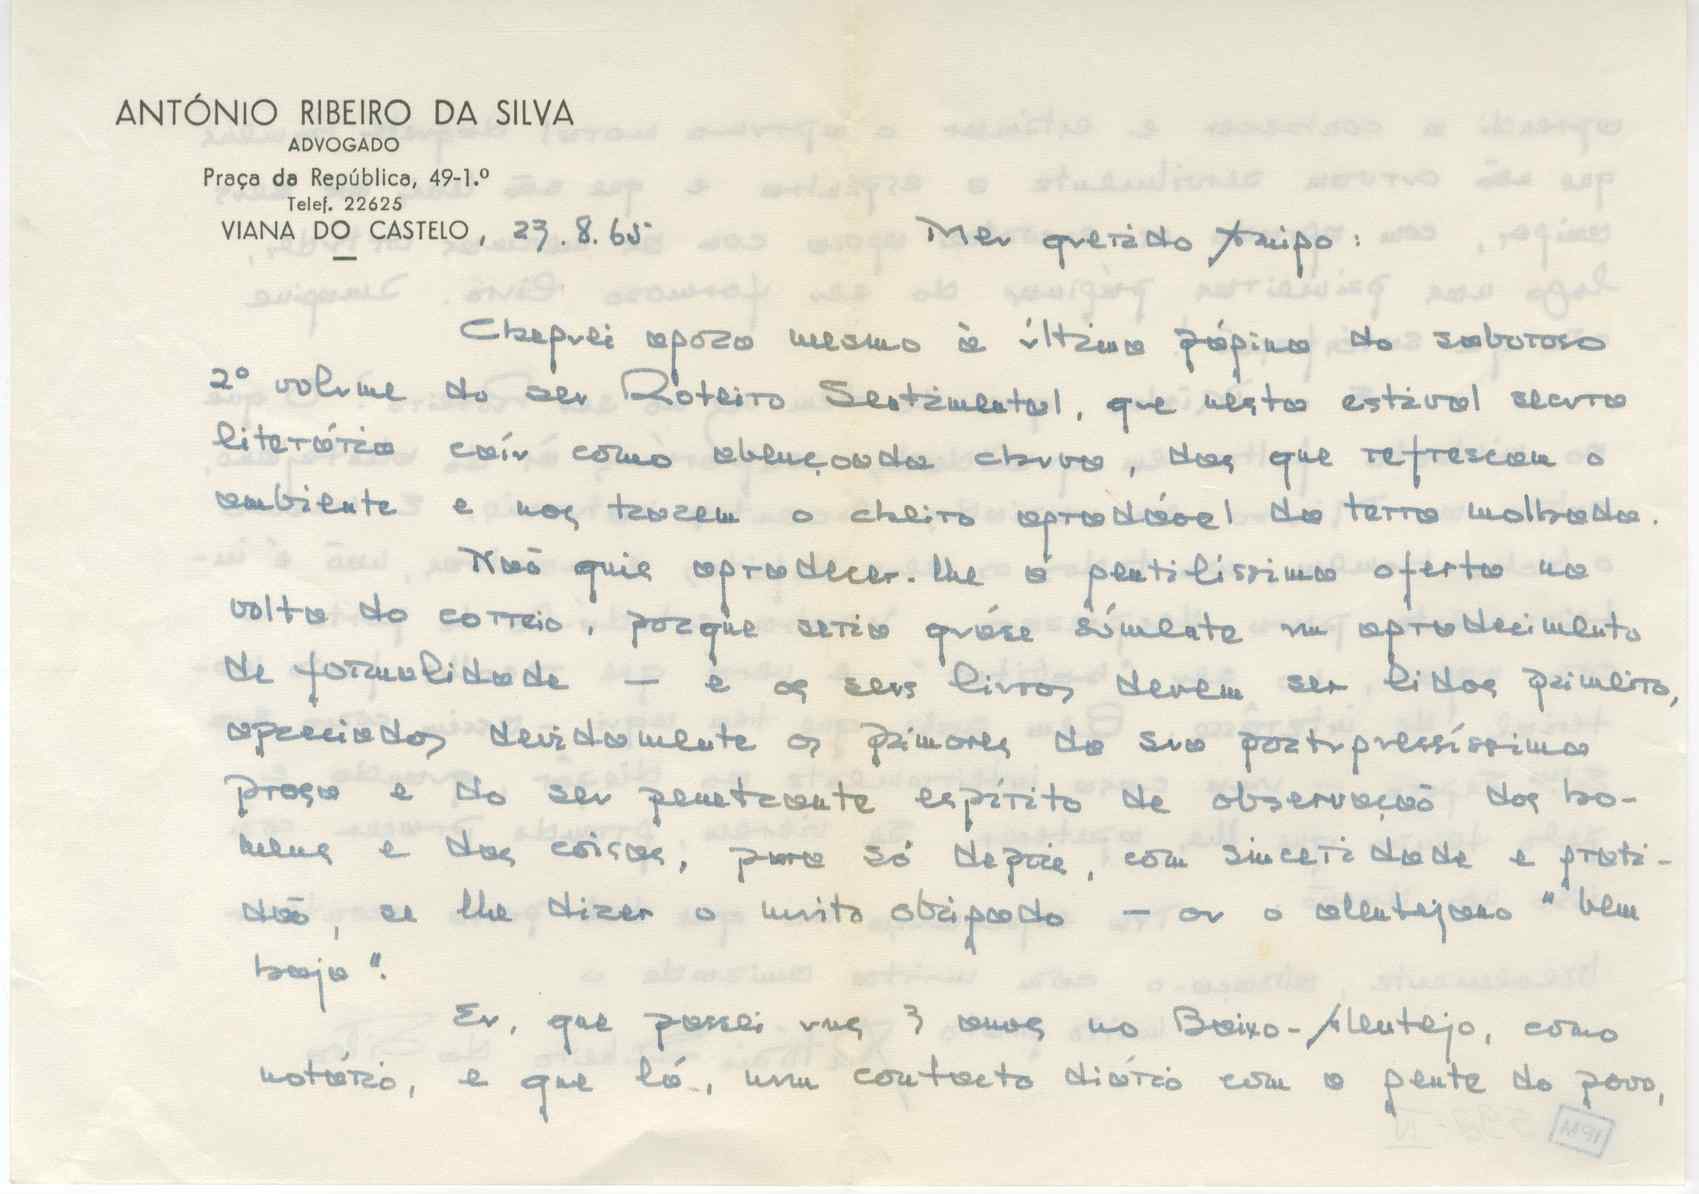 ANTÓNIO RIBEIRO DA SILVA
ADVOGADO
Praça da República, 49-1.º
Telef. 22625
VIANA DO CASTELO, 23.8.65
Meu querido Amigo:
Cheguei agora mesmo à última página do saboroso
2º volume do seu Roteiro Sentimental, que nesta estival secura
literária caíu como abençoada chuva, das que refrescam o
ambiente e nos trazem o cheiro agradável da terra molhada.
Não quis agradecer-lhe a gentilíssima oferta na
volta do correio, porque seria quáse sómente um agradecimento
de formalidade — e os seus livros devem ser lidos primeiro,
apreciados devidamente os primores da sua portuguesíssima
prosa e do seu penetrante espírito de observação dos ho-
mens e das coisas, para só depois, com sinceridade e grati-
dão, se lhe dizer o muito obrigado — ou o alentejano "bem
haja".
Eu, que passei uns 3 anos no Baixo-Alentejo, como
notário, e que lá, num contacto diário com a gente do povo,